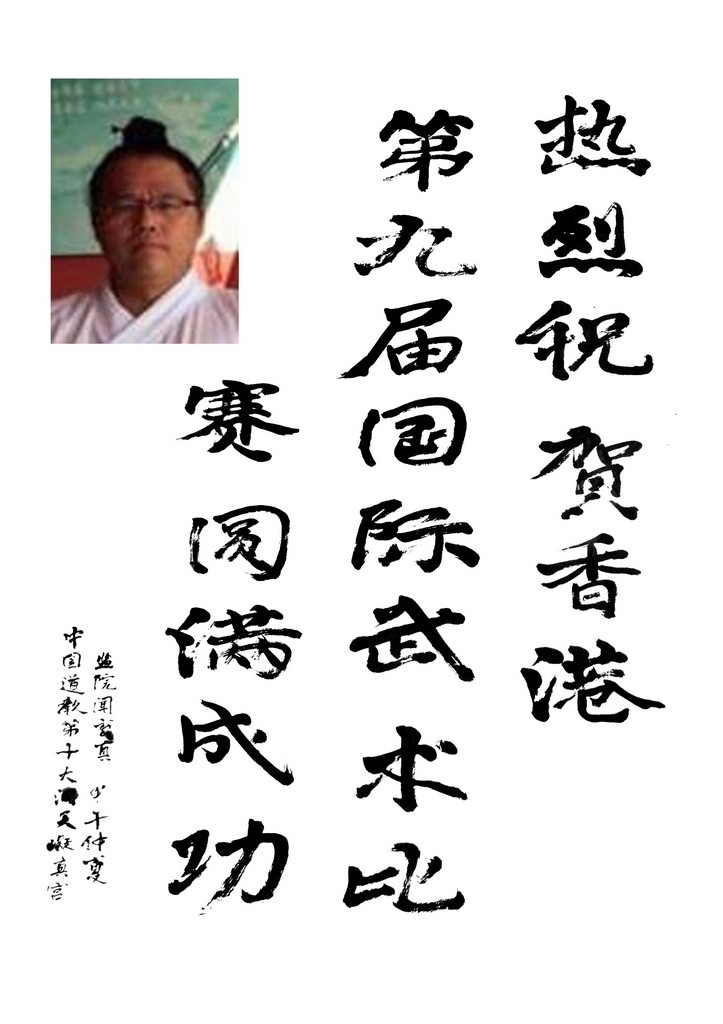 热烈祝贺香港
第九届国际武术比
赛圆满成功
监院闻玄真 午仲夏
中国道教第十大洞天凝真宫